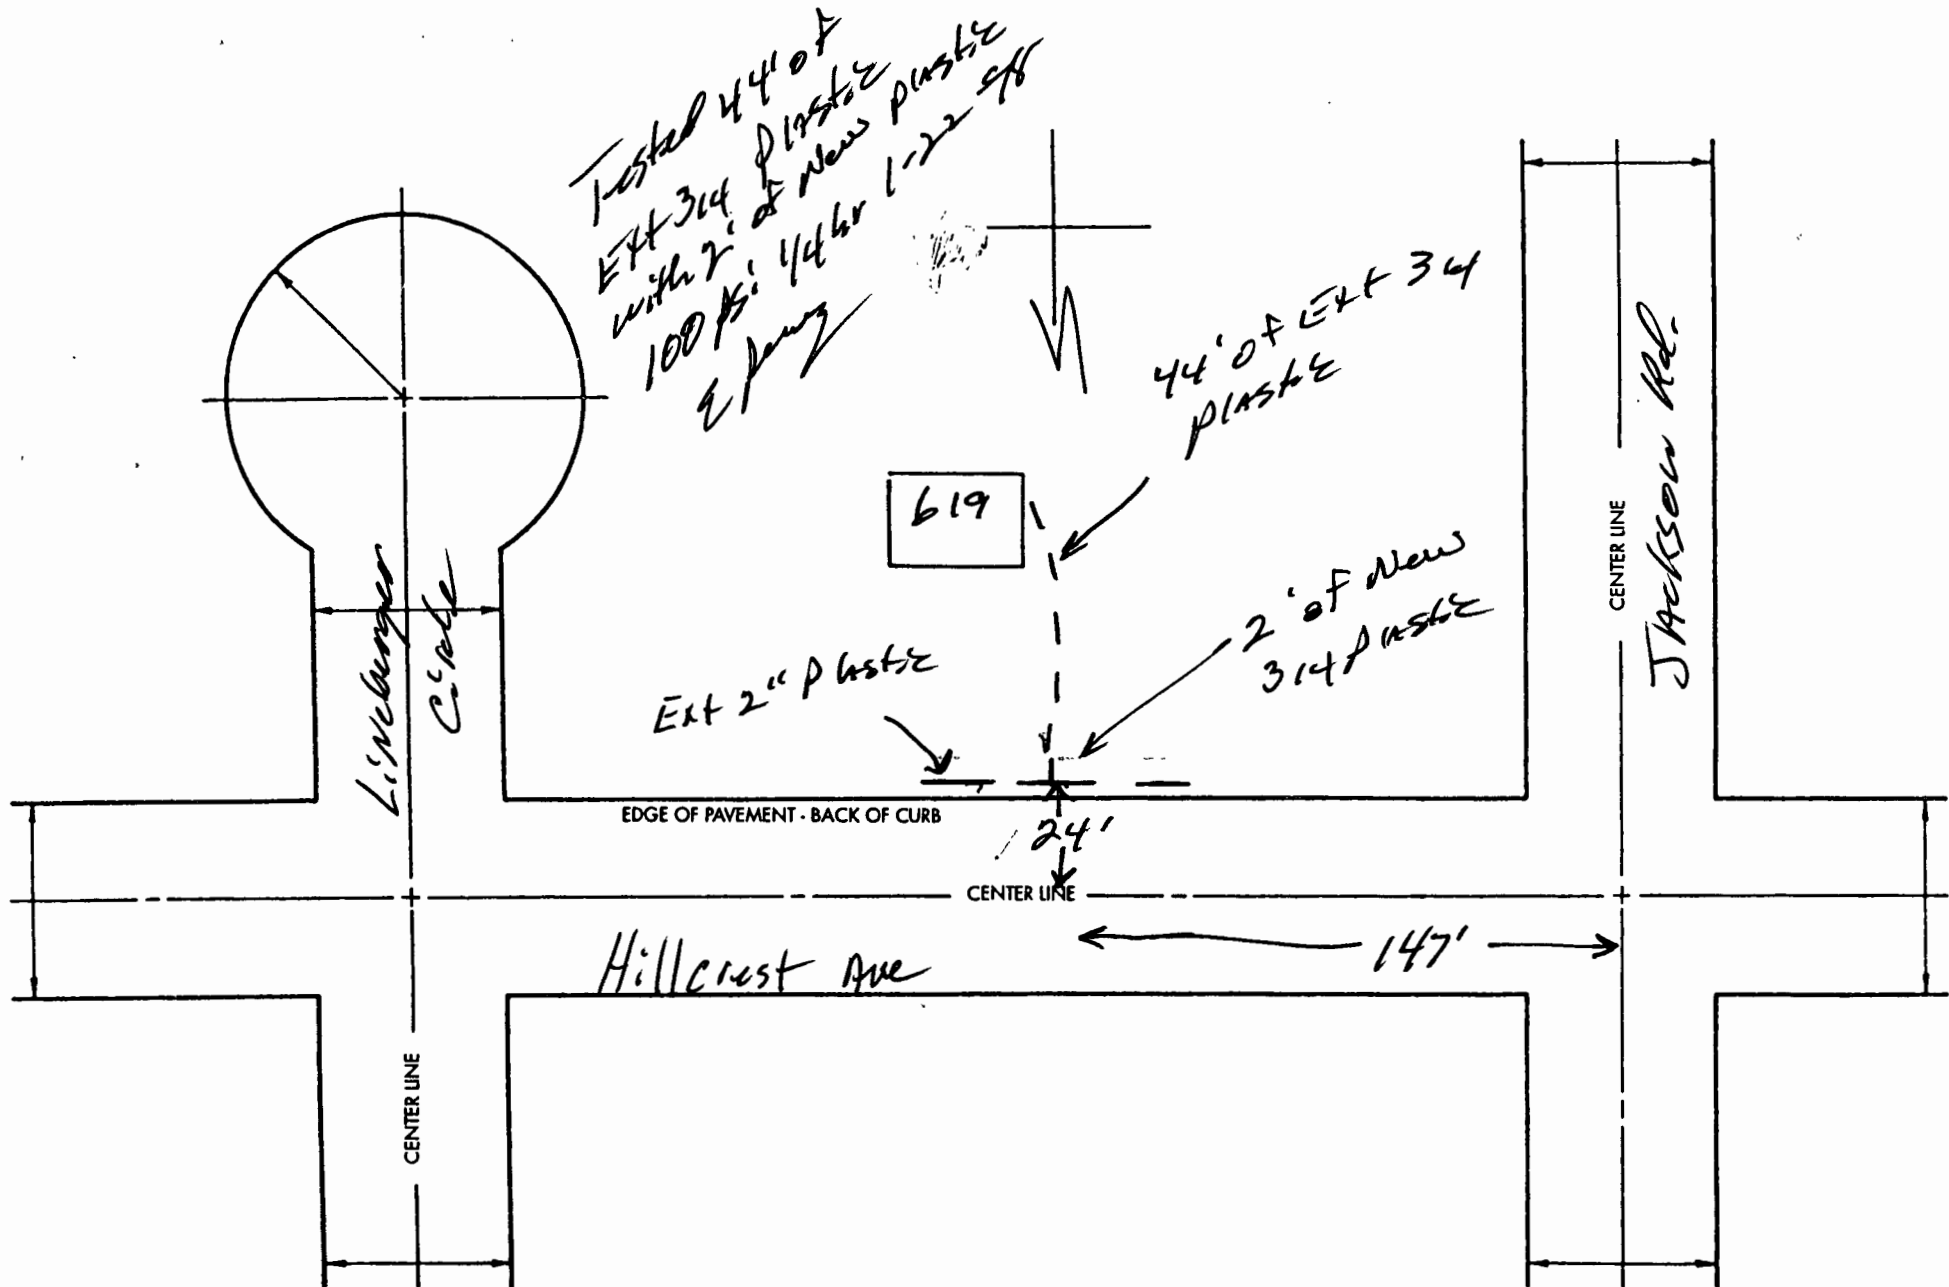 Tested 44' of
Ext 3/4 Plastic
with 2' of New Plastic
100 psi 1/4 hr 1-22
44' of Ext 3/4
Plastic
619
2' of New
3/4 Plastic
Ext 2" Plastic
Circle
Jackson Rd.
CENTER LINE
EDGE OF PAVEMENT - BACK OF CURB
24'
CENTER LINE
147'
Hillcrest Ave
CENTER LINE